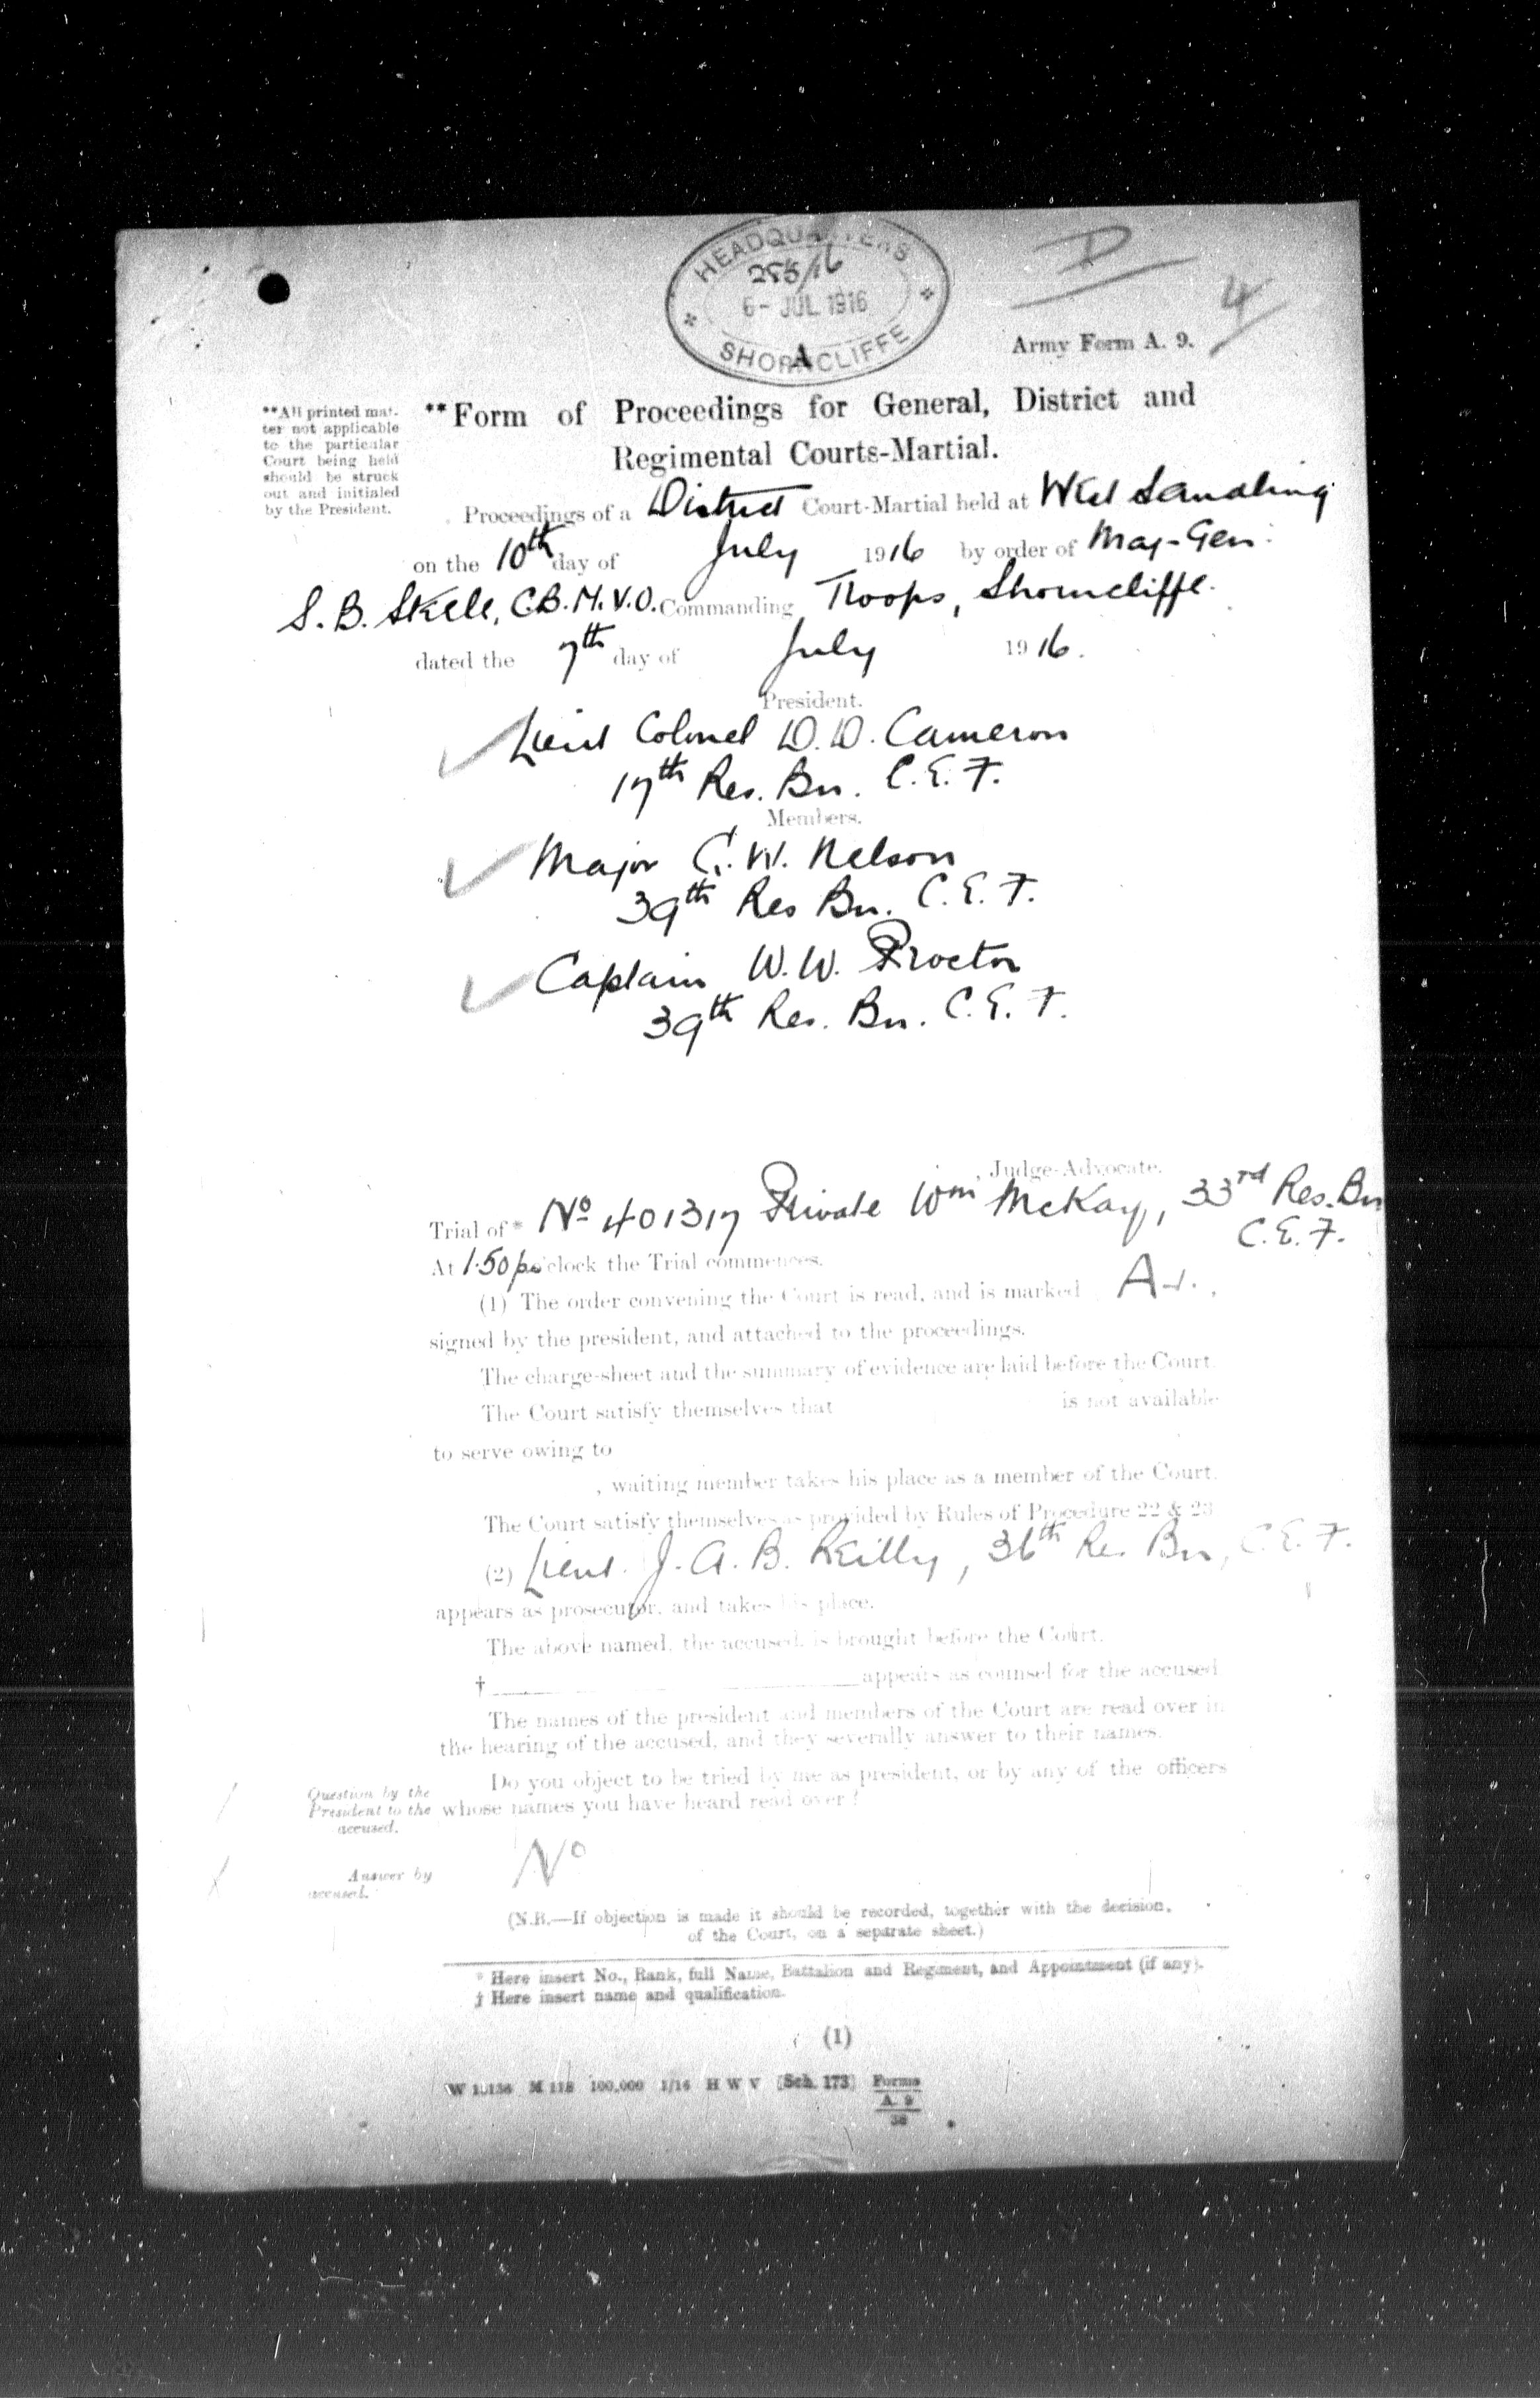 HEADQUARTERS
285/16
6- JUL 1916
A
SHORNCLIFFE
D
4
Army Form A. 9.
**All printed mat-
ter not applicable
to the particular
Court being held
should be struck
out and initialed
by the President.
**Form of Proceedings for General, District and
Regimental Courts-Martial.
Proceedings of a District Court-Martial held at West Sandling
on the 10th day of July 1916 by order of Maj-Gen.
S. B. Steele, C.B. M.V.O. Commanding Troops, Shorncliffe.
dated the 7th day of July 1916.
President.
Lieut Colonel D. D. Cameron
17th Res. Bn. C. E. F.
Members.
Major C. W. Nelson
39th Res Bn. C. E. F.
Captain W. W. Proctor
39th Res. Bn. C. E. F.
, Judge-Advocate.
Trial of* No 401317 Private Wm McKay, 33rd Res. Bn
C. E. F.
At 1.50 pm o'clock the Trial commences.
(1) The order convening the Court is read, and is marked A
signed by the president, and attached to the proceedings.
The charge-sheet and the summary of evidence are laid before the Court.
The Court satisfy themselves that is not available
to serve owing to
, waiting member takes his place as a member of the Court.
The Court satisfy themselves as provided by Rules of Procedure 22 & 23
(2) Lieut. J. A. B. Reilly, 36th Res Bn, C. E. F.
appears as prosecutor, and takes his place.
The above named, the accused, is brought before the Court.
† appears as counsel for the accused
The names of the president and members of the Court are read over in
the hearing of the accused, and they severally answer to their names.
Question by the
President to the
accused.
Do you object to be tried by me as president, or by any of the officers
whose names you have heard read over?
Answer by
accused.
No
(N.B.—If objection is made it should be recorded, together with the decision,
of the Court, on a separate sheet.)
* Here insert No., Rank, full Name, Battalion and Regiment, and Appointment (if any).
† Here insert name and qualification.
(1)
M 118 100,000 1/16 H W V [Sch. 173] Forms
A. 9
38